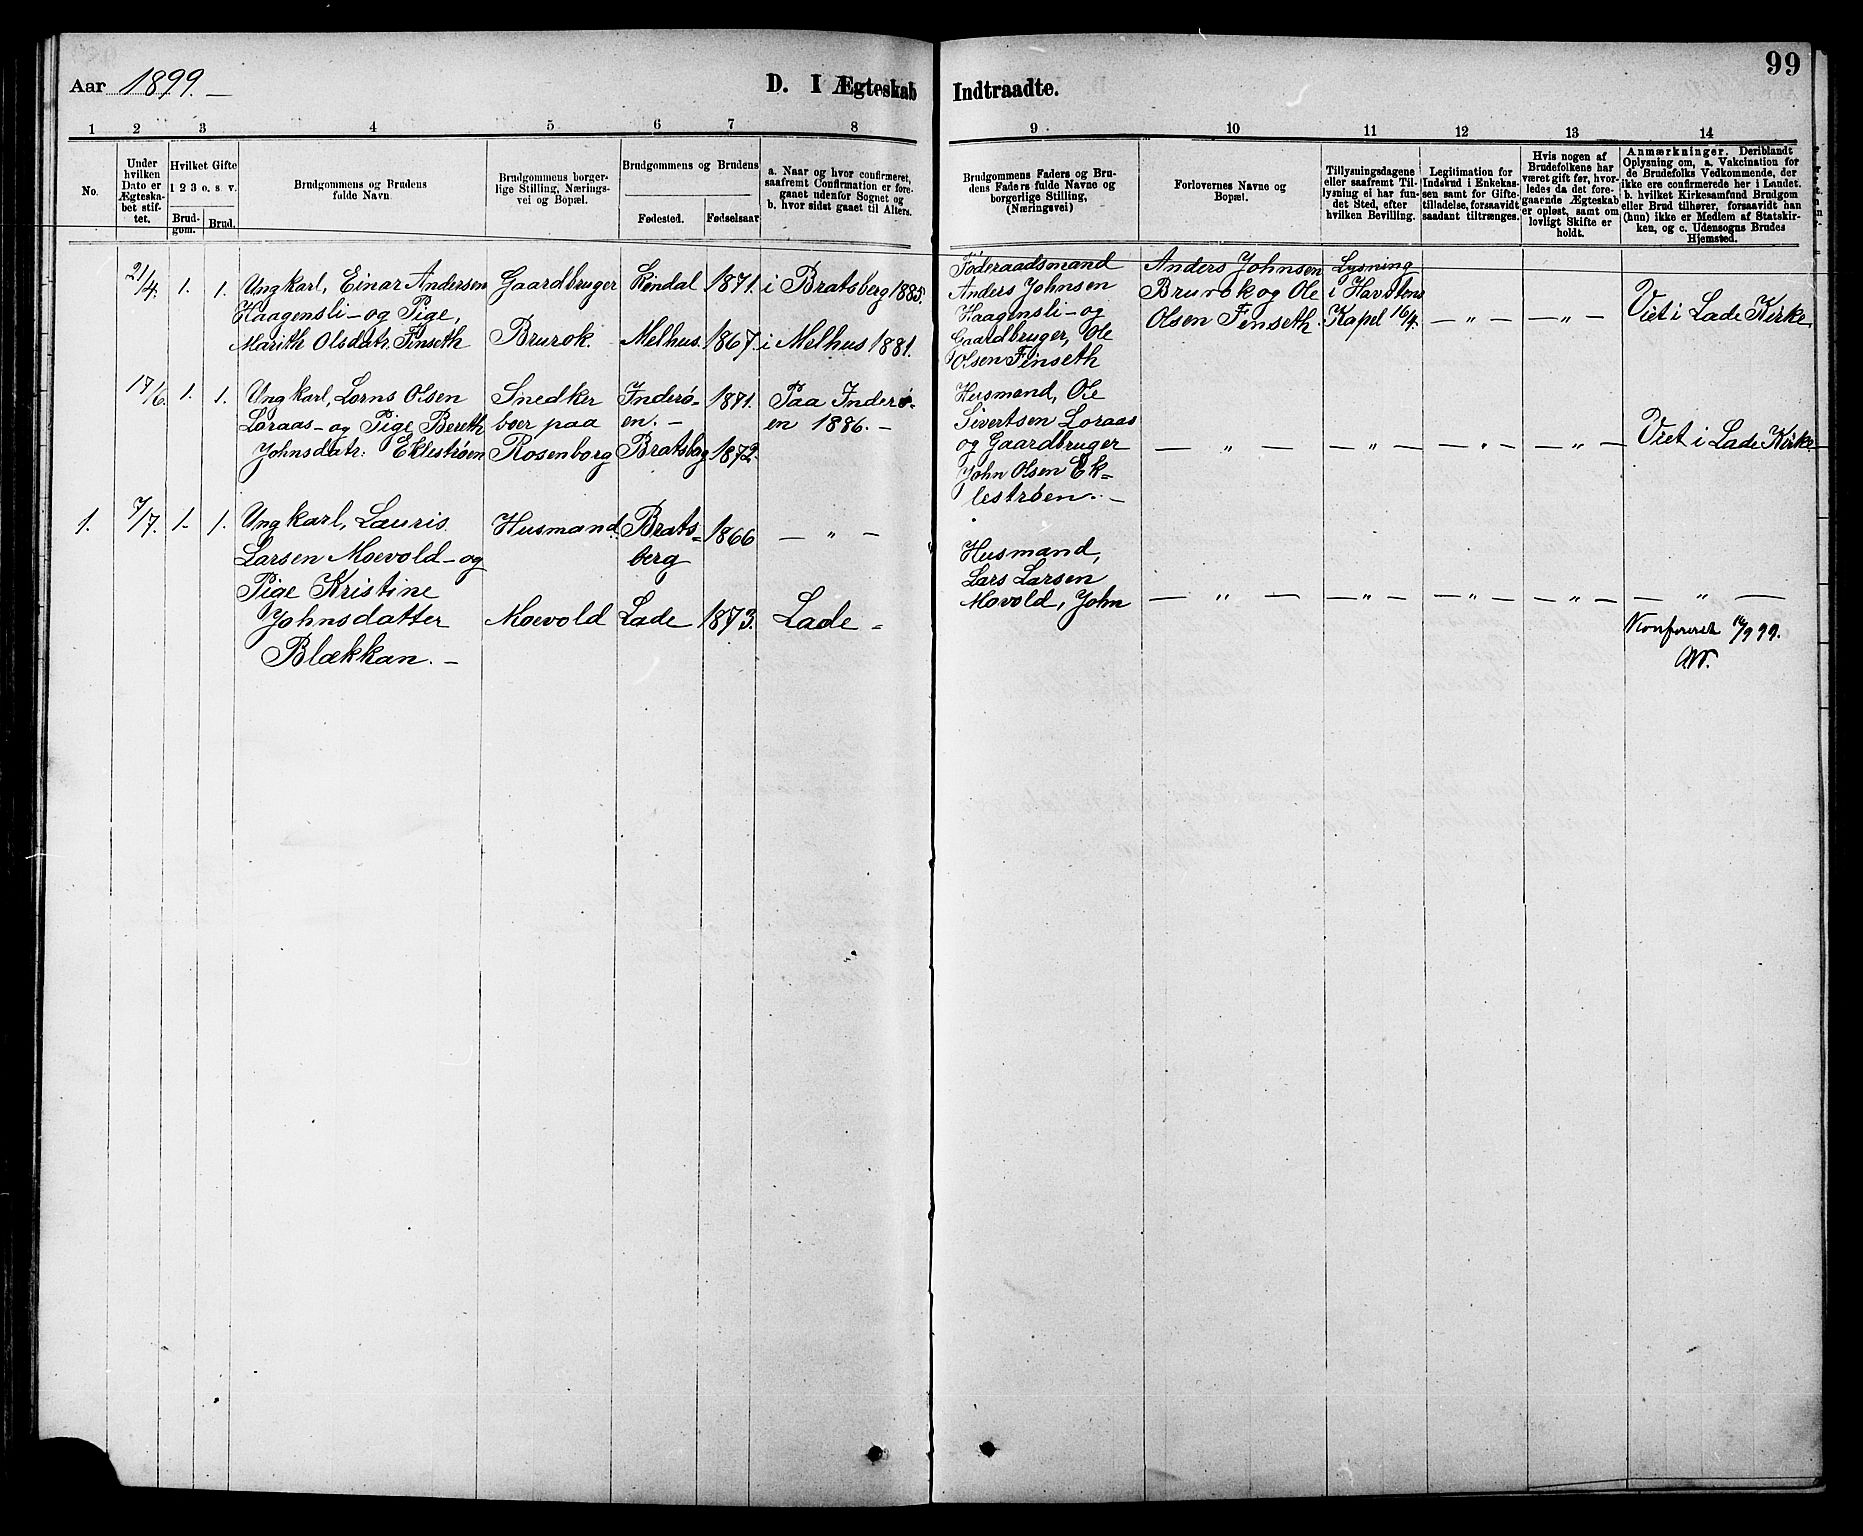 99
Aar 1899. –
D. I Ægteskab Indtraadte.
1 2 3 4 5 6 7 8 9 10 11 12 13 14
No.
Under
hvilken
Dato er
Ægteska-
bet stif-
tet.
Hvilket Gifte
1 2 3 o. s. v.
Brud-
gom.
Brud.
Brudgommens og Brudens
fulde Navn.
Brudgommens borger-
lige Stilling, Nærings-
vei og Bopæl.
Brudgommens og Brudens
Fødested.
Fødselsaar
a. Naar og hvor confirmeret,
saafremt Confirmation er fore-
gaaet udenfor Sognet og
b. hvor sidst gaaet til Alters.
Brudgommens Faders og Bru-
dens Faders fulde Navne og
borgerlige Stilling,
(Næringsvei)
Forlovernes Navne og
Bopæl.
Tillysningsdagene
eller saafremt Til-
lysning ei har fun-
det Sted, efter
hvilken Bevilling.
Legitimation for
Indskud i Enkekas-
sen samt for Gifte-
tilladelse, forsaavidt
saadant tiltrænges.
Hvis nogen af
Brudefolkene har
været gift før, hvor-
ledes da det fore-
gaaende Ægteskab
er opløst, samt om
lovligt Skifte er
holdt.
Anmærkninger. Deriblandt
Oplysning om, a. Vakcination for
de Brudefolks Vedkommende, der
ikke ere confirmerede her i Landet.
b. hvilket Kirkesamfund Brudgom
eller Brud tilhører, forsaavidt han
(hun) ikke er Medlem af Statskir-
ken, og c. Udensogns Brudes
Hjemsted.
21/4. 1. 1.
Ungkarl, Einar Andersen
Haagensli – og Pige,
Marith Olsdatr. Finseth
Gaardbruger
Brurok.
Melhus.
1871.
1867.
i Bratsberg 1885.
i Melhus 1881.
Føderaadsmand
Anders Johnsen
Haagensli – og
Gaardbruger, Ole
Olsen Finseth
Anders Johnsen
Brurok og Ole
Olsen Finseth.
Lysning
i Havstens
Kapel 16/4.
– „ –
– „ –
Viet i Lade Kirke
17/6. 1. 1.
Ungkarl, Lorns Olsen
Loraas – og Pige Bereth
Johnsdatr. Eklestrøen
Snedker
boer paa
Rosenborg
Inderø-
en. –
Bratsbog
1871.
1872.
Paa Inderø-
en 1886. –
Husmand, Ole
Sivertsen Loraas
og Gaardbruger
John Olsen Ek-
lestrøen. –
– „ –
– „ –
– „ –
– „ –
Viet i Lade Kirke
1. 7/7. 1. 1.
Ungkarl, Lauris
Larsen Moevold – og
Pige Kristine
Johnsdatter
Blækkan. –
Husmand.
Moevold
Brats-
berg
Lade
1866
1873.
– „ –
Lade –
Husmand,
Lars Larsen
Movold, John
– „ –
– „ –
– „ –
– „ –
– „ –